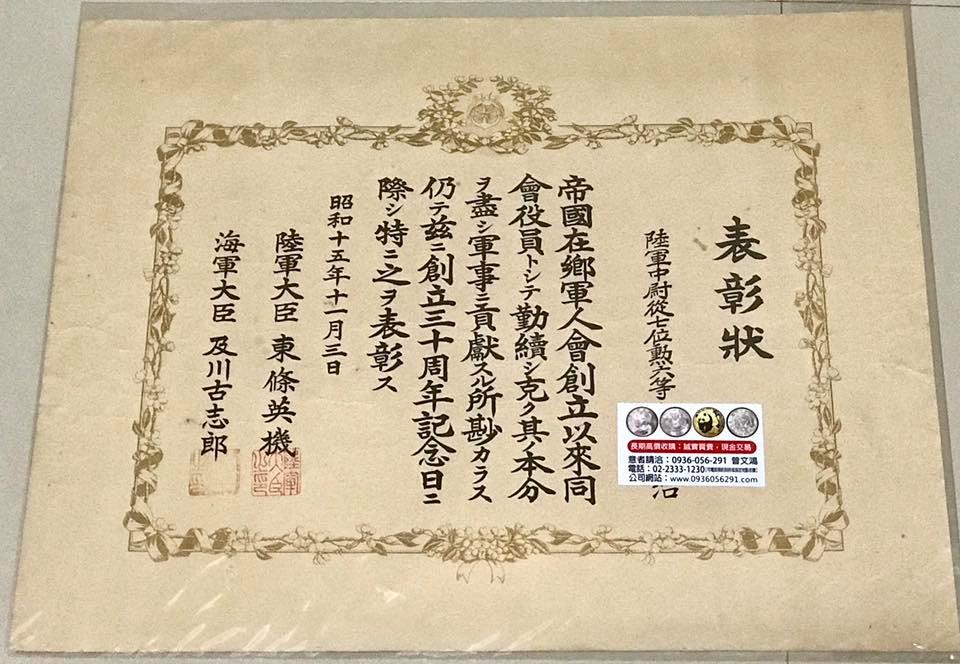 表彰狀
陸軍中尉從七位勲六等
治
帝國在鄉軍人會創立以來同
會役員トシテ勤續シ克ク其ノ本分
ヲ盡シ軍事ニ貢獻スル所尠カラス
仍テ茲ニ創立三十周年記念日ニ
際シ特ニ之ヲ表彰ス
昭和十五年十一月三日
陸軍大臣 東條英機
海軍大臣 及川古志郎
長期高價收購：誠實買賣，現金交易
意者請洽：0936-056-291 曾文鴻
電話：02-2333-1230
公司網站：www.0936056291.com